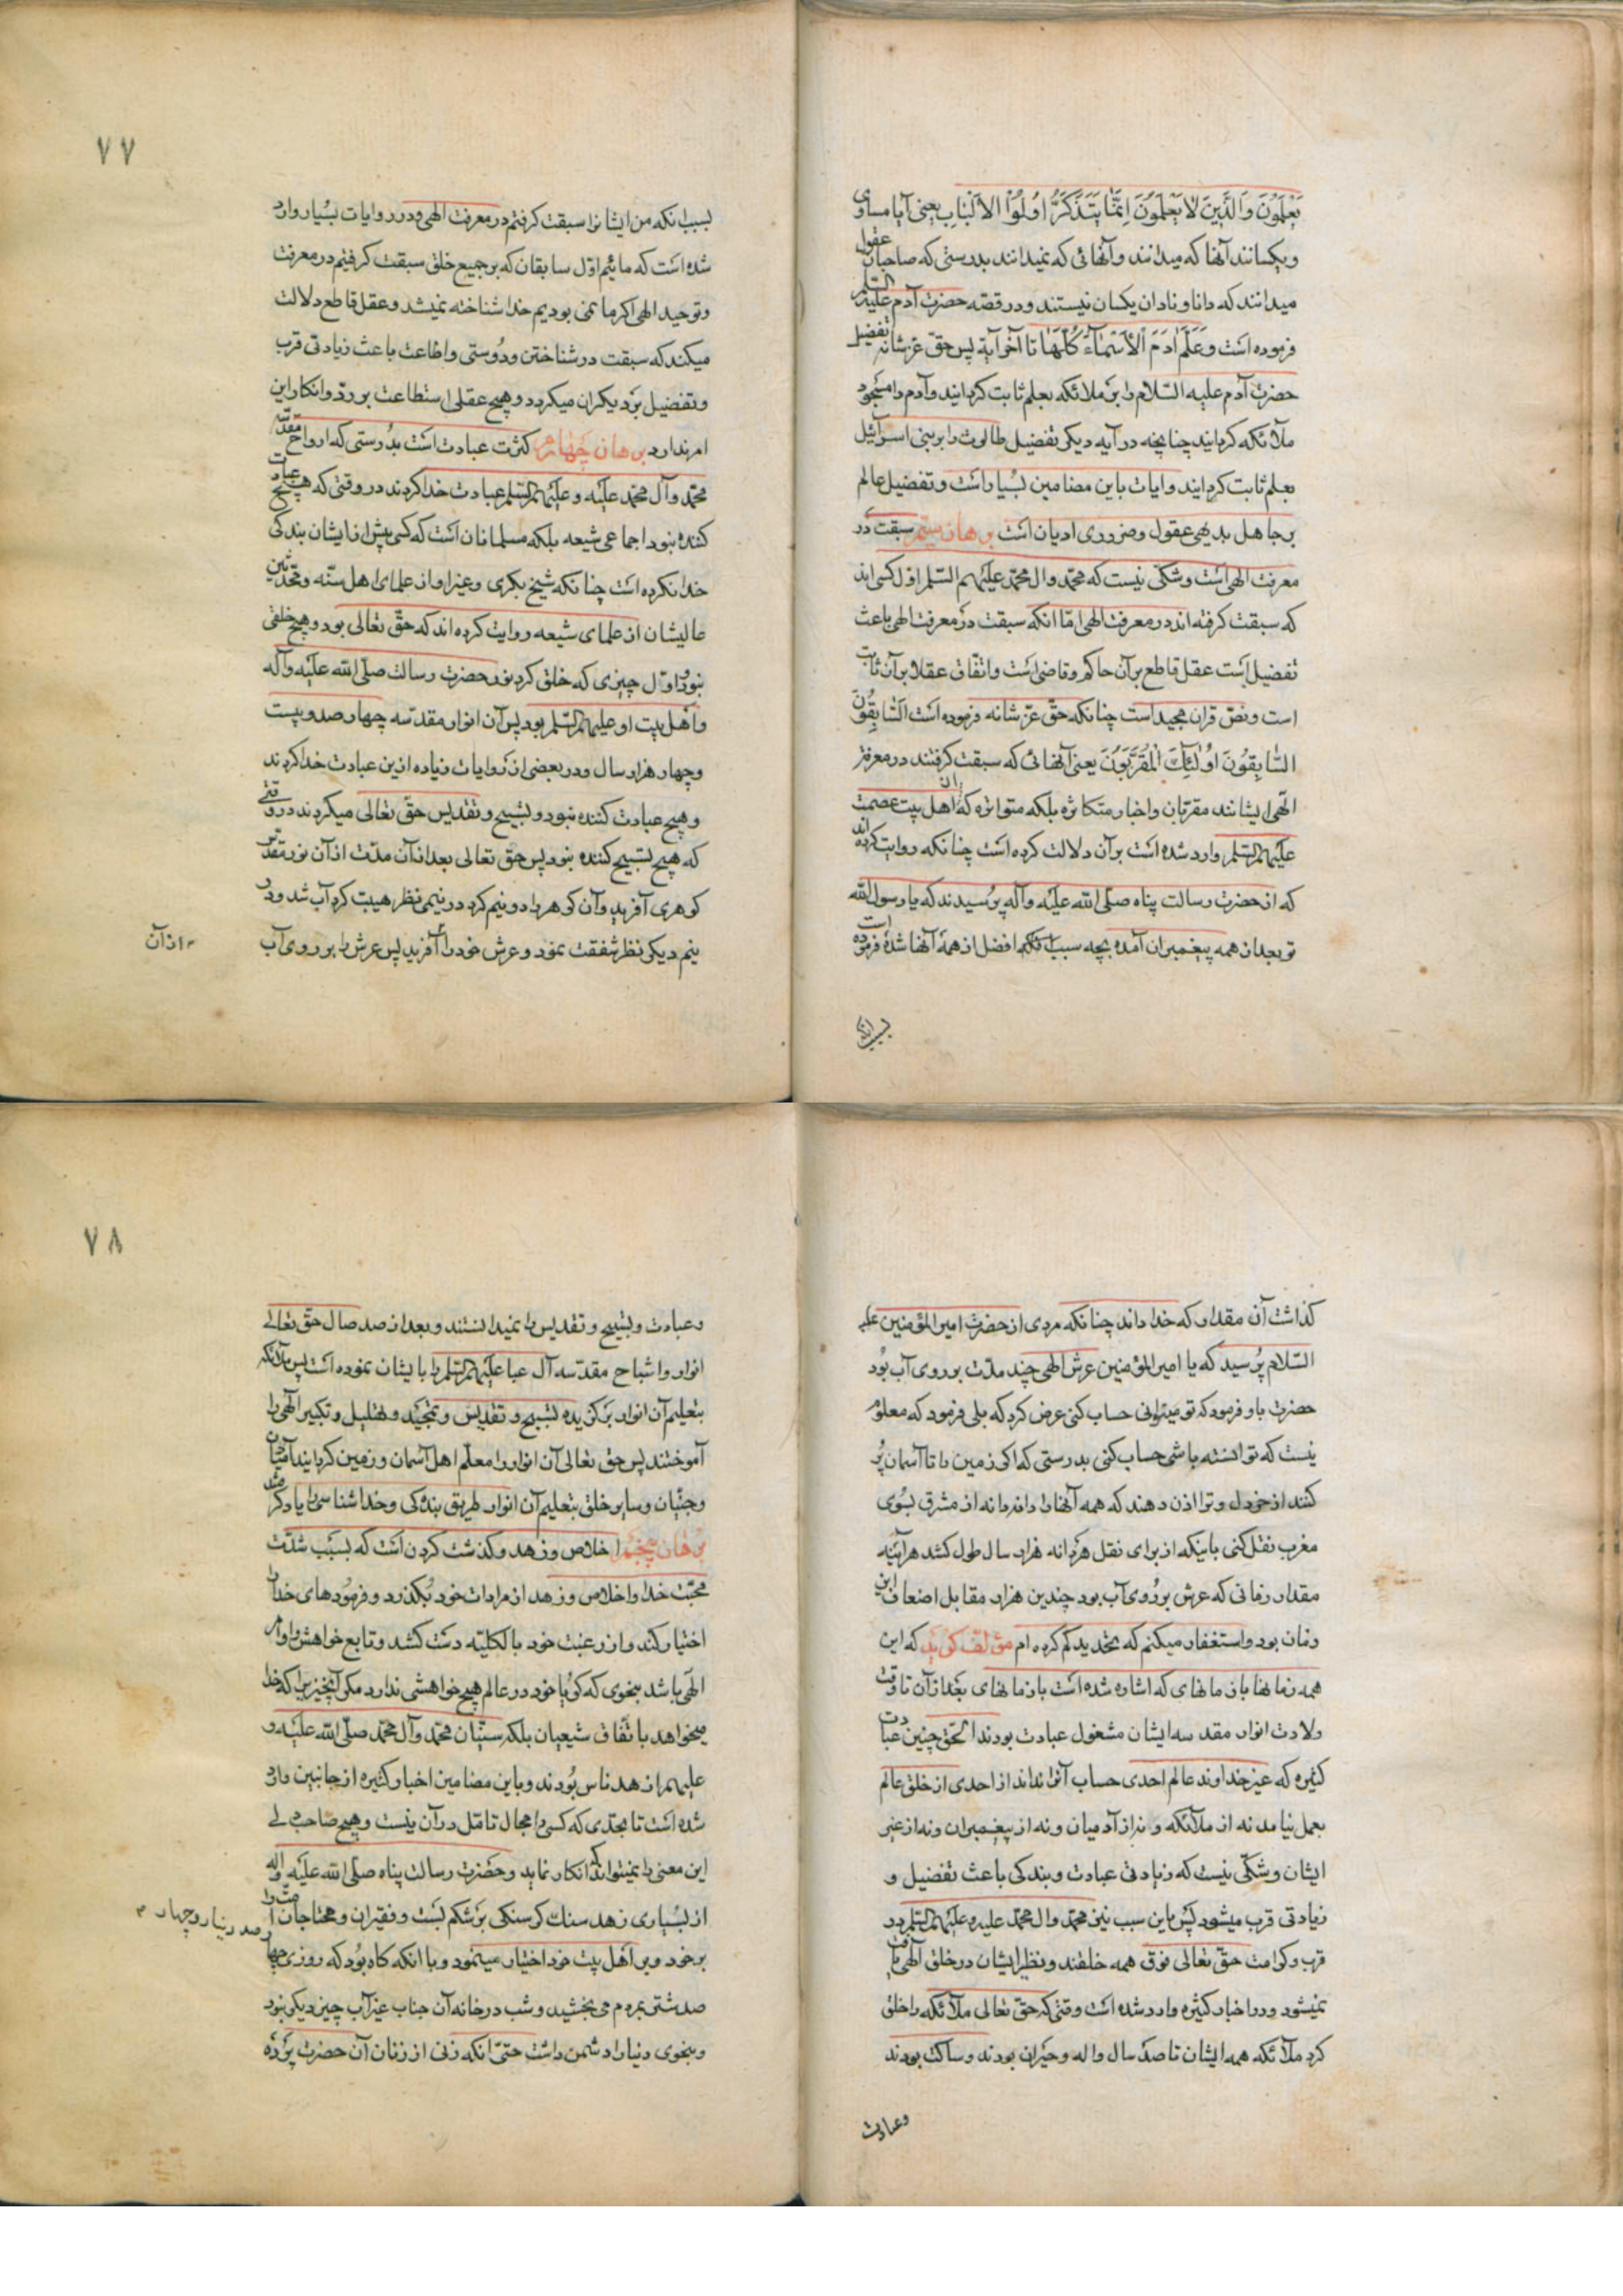 یَعْلَمُونَ وَالَّذِینَ لَا یَعْلَمُونَ اِنَّمَا یَتَذَکَّرُ اُولُوْا الْاَلْبٰابِ یعنی آیا مساوی
ویکسانند آنها که میدانند وآنهائی که نمیدانند بدرستی که صاحبان عقول
میدانند که دانا ونادان یکسان نیستند ودر قصه حضرت آدم علیه السلم
فرموده است وَعَلَّمَ اٰدَمَ الْاَسْمٰاءَ کُلَّهٰا تا آخر آیة پس حق عز شانه تفضیل
حضرت آدم علیه السّلام را بر ملائکه بعلم ثابت گردانید وآدم را مسجود
ملائکه گردانید چنانچه در آیه دیگر تفضیل طالوت را بر بنی اسرائیل
بعلم ثابت گردانید وایات باین مضامین بسیار است وتفضیل عالم
بر جاهل بدیهی عقول وضروری ادیان است برهان سیّم سبقت در
معرفت الهی است وشکی نیست که محمّد وال محمّد علیهم السّلم اوّل کسی اند
که سبقت گرفته اند در معرفت الهی امّا انکه سبقت در معرفت الهی باعث
تفضیل است عقل قاطع بر آن حاکم وقاضی است واتّفاق عقلا بر آن ثابت
است ونصّ قران مجید است چنانکه حقّ عزّ شانه فرموده است اَلسّٰابِقُونَ
السّٰابِقُونَ اُولٰئِکَ الْمُقَرَّبُونَ یعنی آنهائی که سبقت گرفتند در معرفت
الٓهی ایشانند مقرّبان واخبار متکاثره بلکه متواتره که از اهل بیت عصمت
علیهم السّلم وارد شده است بر آن دلالت کرده است چنانکه روایت کرده اند
که از حضرت رسالت پناه صلّی الله علیه وآله پرسیدند که یا رسول الله
تو بعد از همه پیغمبران آمده بچه سبب است که افضل از همه آنها شدهٔ فرموده
بسبب انکه
۷۷
بسبب انکه من ایشانرا سبقت گرفتم در معرفت الهی ودر روایات بسیار وارد
شده است که مائیم اوّل سابقان که بر جمیع خلق سبقت گرفتیم در معرفت
وتوحید الهی اگر ما نمی بودیم خدا شناخته نمیشد وعقل قاطع دلالت
میکند که سبقت در شناختن ودوستی واطاعت باعث زیادتی قرب
وتفضیل بر دیگران میگردد وهیچ عقلی استطاعت بر ردّ وانکار این
امر ندارد برهان چهارم کثرت عبادت است بدرستی که ارواح مقدّسه
محمّد وآل محمّد علیه وعلیهم السّلم عبادت خدا کردند در وقتی که هیچ عبادت
کننده نبود اجماعی شیعه بلکه مسلمانان است که کسی پیش از ایشان بندگی
خدا نکرده است چنانکه شیخ بکری وغیر او از علمای اهل سنّه ومحدّثین
عالیشان از علمای شیعه روایت کرده اند که حقّ تعالی بود وهیچ خلقی
نبود واوّل چیزی که خلق کرد نور حضرت رسالت صلّی الله علیه وآله
واهل بیت او علیهم السّلم بود پس آن انوار مقدّسه چهار صد وبیست
وچهار هزار سال ودر بعضی از روایات زیاده ازین عبادت خدا کردند
وهیچ عبادت کننده نبود وتسبیح وتقدیس حقّ تعالی میکردند در وقتی
که هیچ تسبیح کننده نبود پس حق تعالی بعد از آن مدّت از آن نور مقدّس
گوهری آفرید وآن گوهر را دو نیم کرد در نیمی نظر هیبت کرد آب شد ودر
نیم دیگر نظر شفقت نمود وعرش خود را آفرید پس عرش را بر روی آب
از آن
گذاشت آن مقدار که خدا داند چنانکه مردی از حضرت امیر المؤمنین علیه
السّلام پرسید که یا امیر المؤمنین عرش الهی چند مدّت بر روی آب بود
حضرت باو فرمود که تو میتوانی حساب کنی عرض کرد که بلی فرمود که معلوم
نیست که توانسته باشی حساب کنی بدرستی که اگر زمین را تا آسمان پر
کنند از خردل وترا اذن دهند که همه آنها را دانه دانه از مشرق بسوی
مغرب نقل کنی باینکه از برای نقل هر دانه هزار سال طول کشد هراینه
مقدار زمانی که عرش بر روی آب بود چندین هزار مقابل اضعاف این
زمان بود واستغفار میکنم که تحدید کم کرده ام مؤلف گوید که این
همه زمانها با زمانهای که اشاره شده است با زمانهای بعد از آن تا وقت
ولادت انوار مقدسه ایشان مشغول عبادت بودند الحقّ چنین عبادت
کثیره که غیر خداوند عالم احدی حساب آنرا نداند از احدی از خلق عالم
بعمل نیامد نه از ملائکه ونه از آدمیان ونه از پیغمبران ونه از غیر
ایشان وشکّی نیست که زیادتی عبادت وبندگی باعث تفضیل و
زیادتی قرب میشود پس باین سبب نیز محمّد وال محمّد علیه وعلیهم السّلم در
قرب وکرامت حقّ تعالی فوق همه خلقند ونظیر ایشان در خلق الهی یافت
نمیشود ودر اخبار کثیره وارد شده است وقتی که حقّ تعالی ملائکه را خلق
کرد ملائکه همه ایشان تا صد سال واله وحیران بودند وساکت بودند
وعبادت
۷۸
وعبادت وتسبیح وتقدیس را نمیدانستند وبعد از صد سال حقّ تعالی
انوار واشباح مقدّسه آل عبا علیهم السّلم را بایشان نموده است پس ملائکه
بتعلیم آن انوار برگزیده تسبیح وتقدیس وتمجید وتهلیل وتکبیر الٓهی را
آموختند پس حق تعالی آن انوار را معلّم اهل آسمان وزمین گردانید آدمیان
وجنّیان وسایر خلق بتعلیم آن انوار طریق بندگی وخدا شناسی را یاد گرفتند
برهان پنجم اخلاص وزهد وگذشت کردن است که بسبب شدّت
محبّت خدا واخلاص وزهد از مرادات خود بگذرد وفرمودهای خدا را
اختیار کند واز رغبت خود بالکلیّه دست کشد وتابع خواهش واوامر
الٓهی باشد بنحوی که گویا خود در عالم هیچ خواهشی ندارد مگر آنچیزیرا که خدا
میخواهد باتّفاق شیعیان بلکه سنّیان محمّد وآل محمّد صلّی الله علیه و
علیهم ازهد ناس بودند وباین مضامین اخبار کثیره از جانبین وارد
شده است تا بحدّی که کسی را مجال تامّل در آن نیست وهیچ صاحب دلی
این معنی را نمیتواند که انکار نماید وحضرت رسالت پناه صلّی الله علیه وآله
از بسیاری زهد سنک گرسنگی بر شکم بست وفقیران ومحتاجان امّت را
بر خود وبر اهل بیت خود اختیار مینمود وبا انکه گاه بود که روزی چهار
صد دینار وچهار
صد شتر بمردم می بخشید وشب در خانه آن جناب غیر آب چیز دیگر نبود
وبنحوی دنیا را دشمن داشت حتّی انکه زنی از زنان آن حضرت پرده